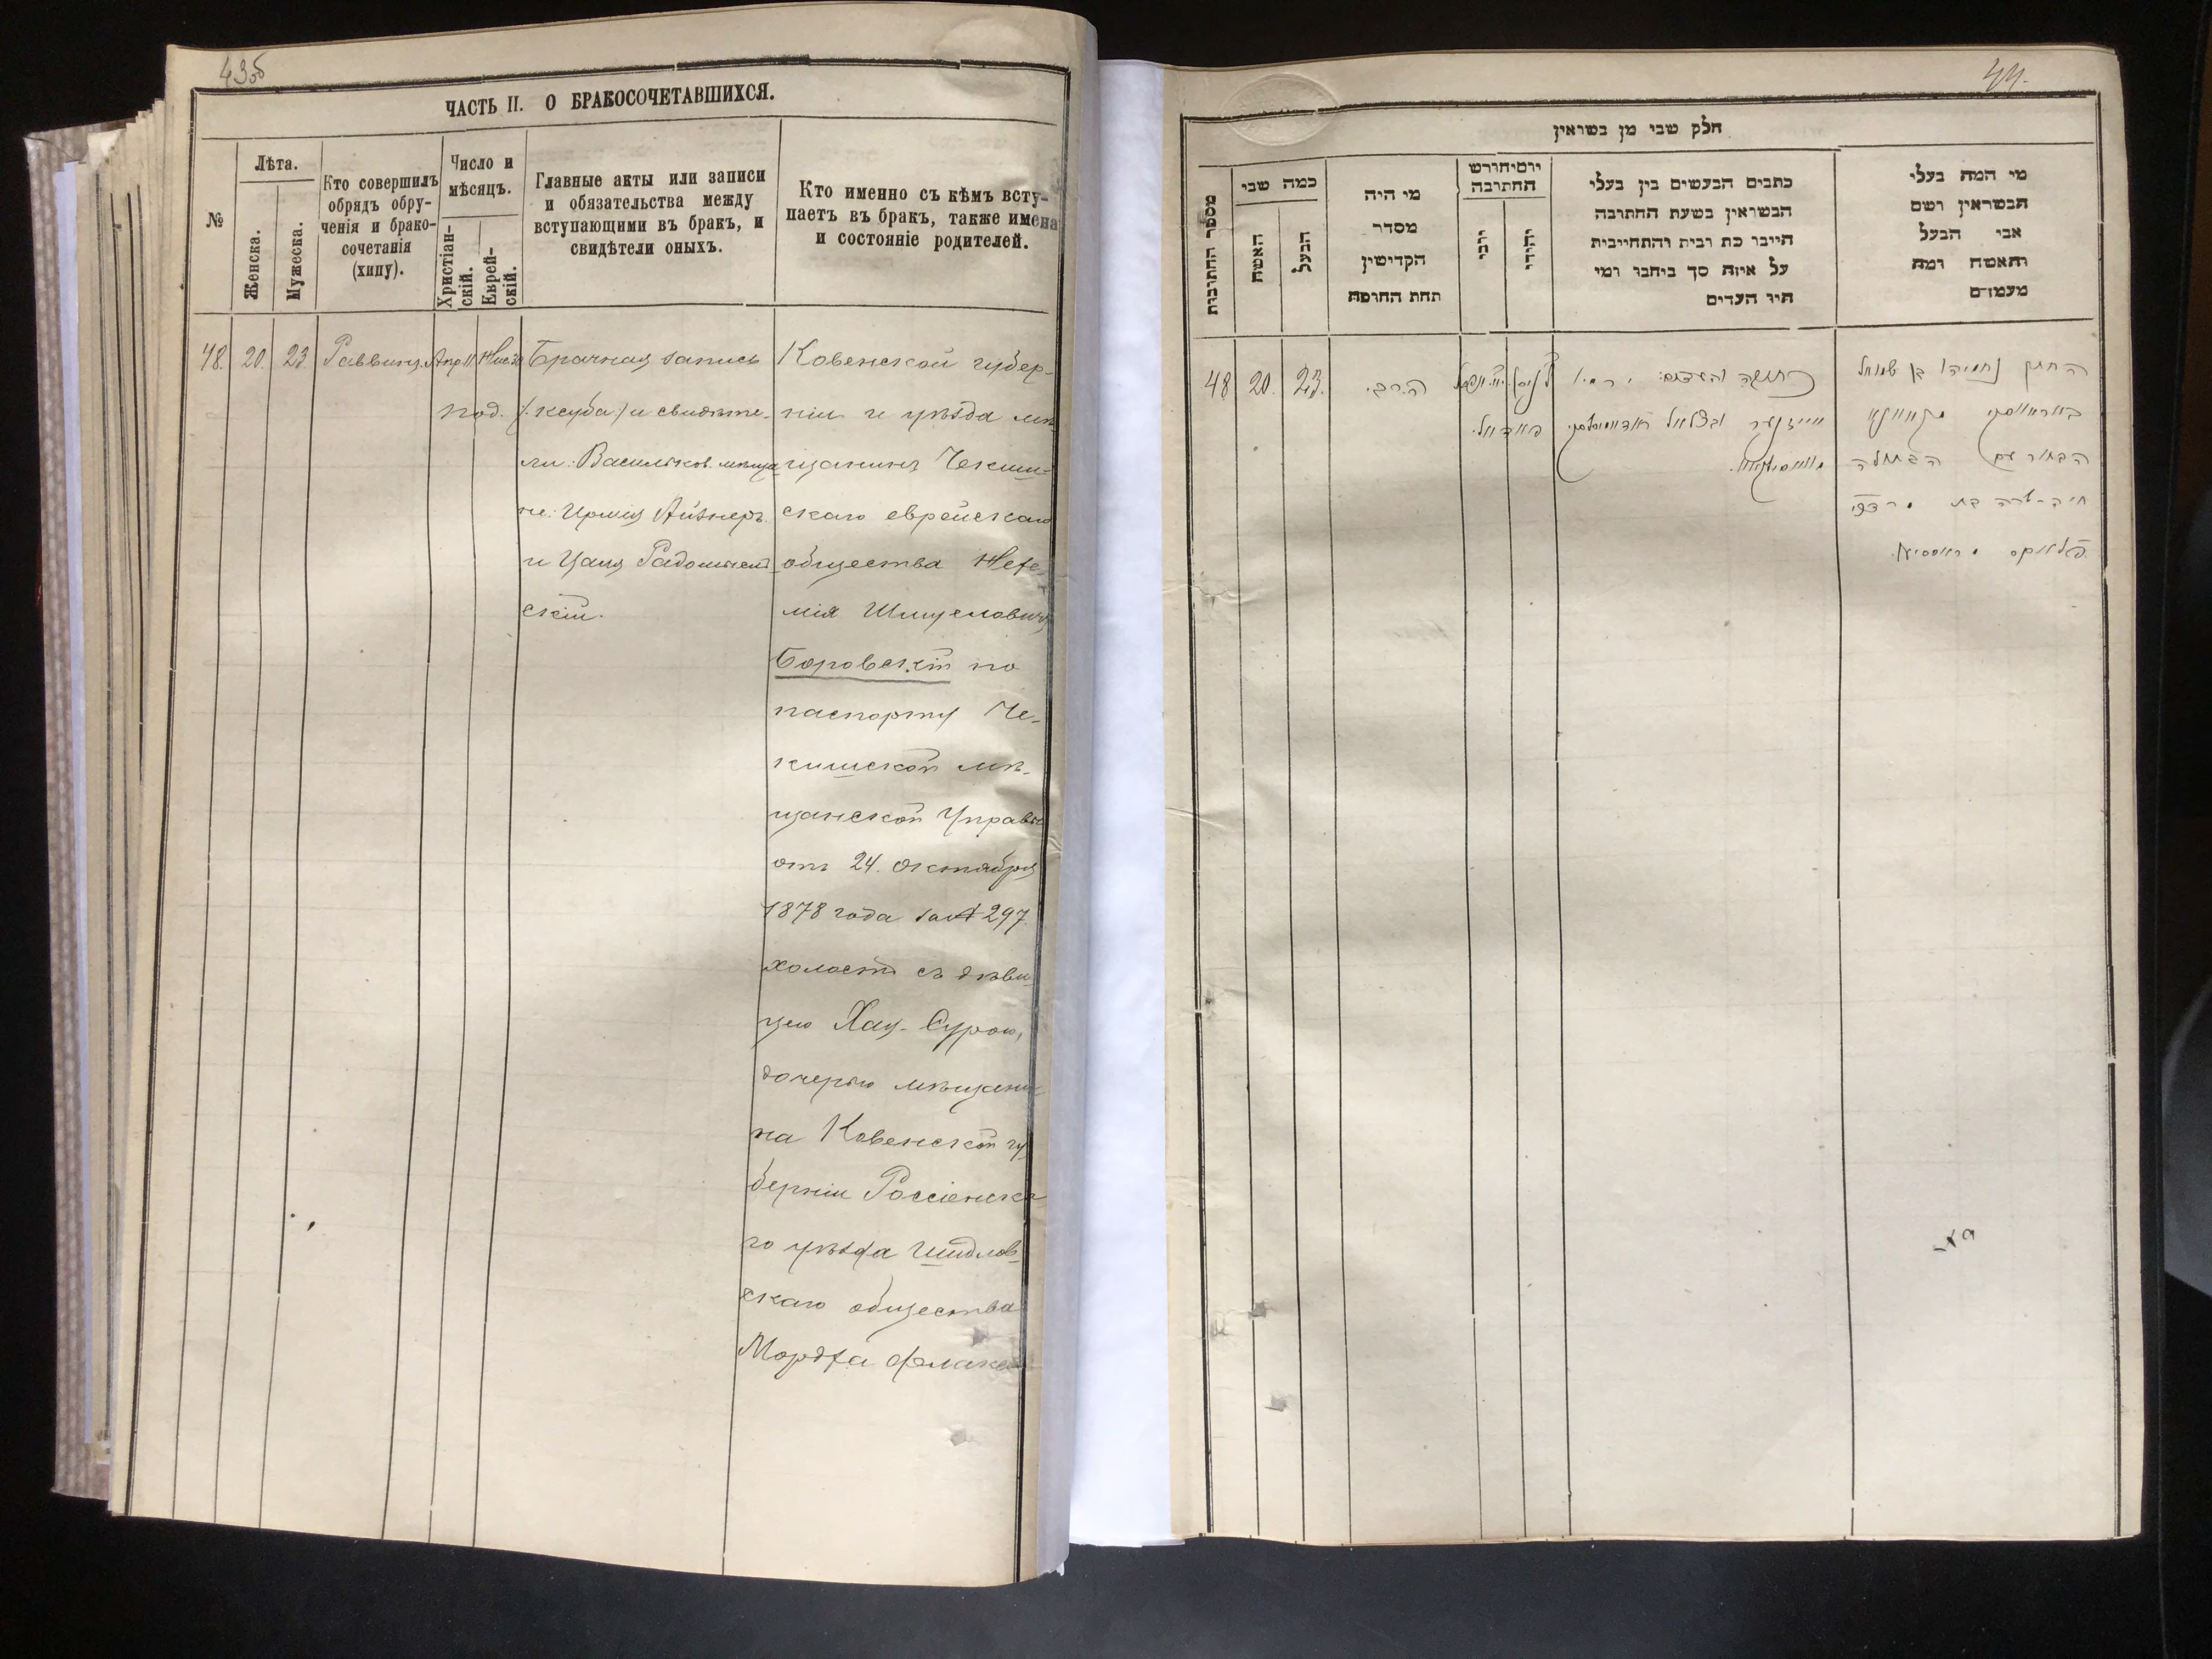 43об
ЧАСТЬ II. О БРАКОСОЧЕТАВШИХСЯ.
№
Лѣта.
Женска.
Мужеска.
Кто совершилъ
обрядъ обру-
ченія и брако-
сочетанія
(хипу).
Число и
мѣсяцъ.
Христіан-
скій.
Еврей-
скій.
Главные акты или записи
и обязательства между
вступающими въ бракъ, и
свидѣтели оныхъ.
Кто именно съ кѣмъ всту-
паетъ въ бракъ, также имена
и состояніе родителей.
48. 20. 23. Раввинъ. Апр 11
Брачная запись
(ксуба) и свидѣте-
ли: Васильков. мѣща
не: Айзнеръ
и Цаля Радомысль
скій.
Ковенской губер-
ніи и уѣзда мѣ
щанинъ Чекиш-
скаго еврейскаго
общества Нехе-
мія Шмуеловичъ
Боровскій по
паспорту Че-
кишской мѣ-
щанской Управы
отъ 24. октября
1878 года за № 297.
холостъ съ дѣви
цею Хая-Сурою,
дочерью мѣщани
на Ковенской гу
берніи Россіенска
го уѣзда Шидлов-
скаго общества
Мордха Флакса
44.
חלק שני מן נשואין
מספר החתונות
כמה שני
האשה
הבעל
מי היה
מסדר
הקדושין
תחת החופה
יום וחודש
החתונה
יוני
יהודי
כתבים הנעשים בין בעלי
הנשואין בשעת החתונה
היינו כתובות והתחייבות
על איזה סך ביחבו ומי
היו העדים
מי המה בעלי
הנשואין ושם
אבי הבעל
והאשה ומה
מעמדם
48 20. 23.
החתן נחמיה בן שמואל
באראווסקי מקאוונא
הבחור עם הבתולה
חיה-שרה בת מרדכי
פלאקס מראסיין.